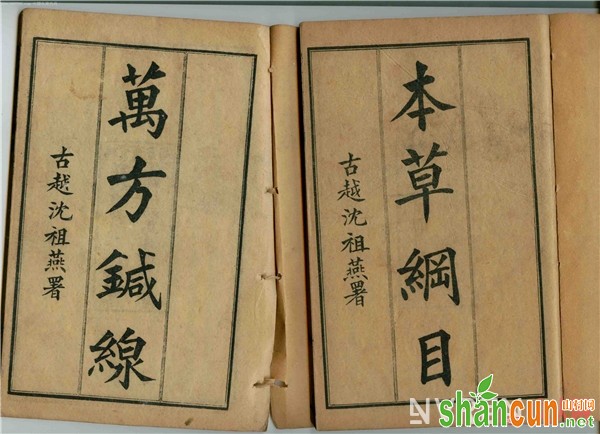 本草綱目
古越沈祖燕署
萬方鍼線
古越沈祖燕署
shancun
山村网
.net